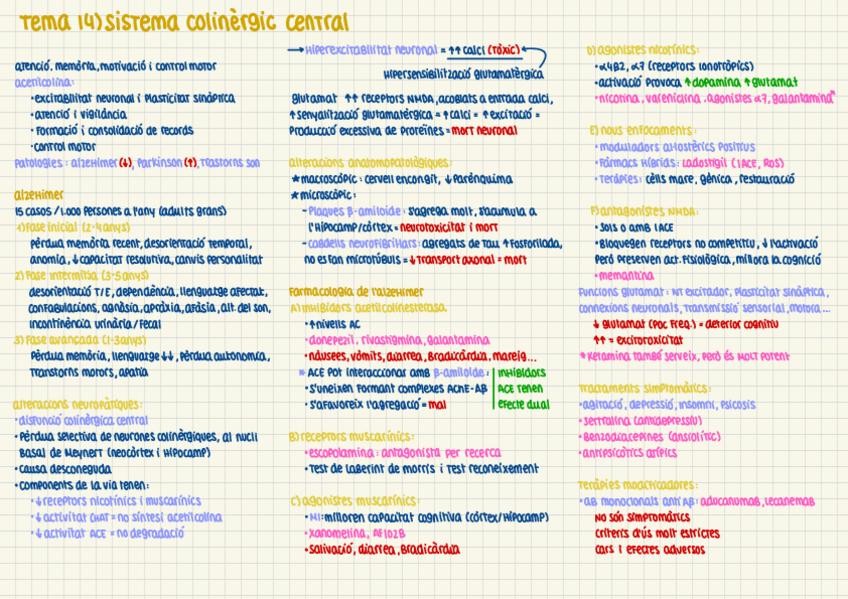 Tema 14) sistema colinèrgic central
atenció, memòria, motivació i control motor
acetilcolina:
• excitabilitat neuronal i plasticitat sinàptica
• atenció i vigilància
• formació i consolidació de records
• control motor
Patologies: alzheimer (↓), Parkinson (↑), trastorns son
alzheimer
15 casos / 1.000 persones a l'any (adults grans)
1) Fase inicial (2-4 anys)
pèrdua memòria recent, desorientació temporal,
anomia, ↓ capacitat resolutiva, canvis personalitat
2) Fase intermitja (3-5 anys)
desorientació T/E, dependència, llenguatge afectat,
confabulacions, agnòsia, apràxia, afàsia, alt. del son,
incontinència urinària/fecal
3) Fase avançada (1-3 anys)
pèrdua memòria, llenguatge ↓↓, pèrdua autonomia,
transtorns motors, apatia
alteracions neuropàtiques:
• disfunció colinèrgica central
• pèrdua selectiva de neurones colinèrgiques, al nucli
basal de Meynert (neocòrtex i hipocamp)
• causa desconeguda
• components de la via tenen:
• ↓ receptors nicotínics i muscarínics
• ↓ activitat CHAT = no síntesi acetilcolina
• ↓ activitat ACE = no degradació
→ Hiperexcitabilitat neuronal = ↑↑ calci (tòxic)
Hipersensibilització glutamatèrgica
glutamat ↑↑ receptors NMDA, acoblats a entrada calci,
↑ senyalització glutamatèrgica = ↑ calci = ↑ excitació =
Producció excessiva de proteïnes = mort neuronal
alteracions anatomopatològiques:
★ macroscòpic: cervell encongit, ↓ parènquima
★ microscòpic:
- Plaques β-amiloide: s'agrega molt, s'acumula a
l'hipocamp/còrtex = neurotoxicitat i mort
- cabdells neurofibril·lars: agregats de tau ↑ fosforilada,
no es fan microtúbuls = ↓ transport axonal = mort
Farmacologia de l'alzheimer
A) inhibidors acetilcolinesterasa
• ↑ nivells AC
• donepezil, rivastigmina, galantamina
• nàusees, vòmits, diarrea, bradicàrdia, mareig...
* ACE pot interaccionar amb β-amiloide:
• s'uneixen formant complexes AChE-AB
• s'afavoreix l'agregació = mal
inhibidors
ACE tenen
efecte dual
B) receptors muscarínics:
• escopolamina: antagonista per recerca
• test de laberint de morris i test reconeixement
C) agonistes muscarínics:
• M1: milloren capacitat cognitiva (còrtex/hipocamp)
• xanomelina, AF102B
• salivació, diarrea, bradicàrdia
D) agonistes nicotínics:
• α4β2, α7 (receptors ionotròpics)
• activació provoca ↑ dopamina ↑ glutamat
• nicotina, vareniclina, agonistes α7, galantamina
E) nous enfocaments:
• moduladors al·lostèrics positius
• Fàrmacs híbrids: ladostigil (IACE, ROS)
• Teràpies: cèls mare, gènica, restauració
F) antagonistes NMDA:
• sols o amb IACE
• Bloquegen receptors no competitiu, ↓ l'activació
però preserven act. fisiològica, millora la cognició
• memantina
Funcions glutamat: NT excitador, plasticitat sinàptica,
connexions neuronals, transmissió sensorial, motora...
↓ glutamat (poc freq.) = deterior cognitiu
↑↑ = excitotoxicitat
* Ketamina també serveix, però és MOLT potent
Tractaments simptomàtics:
• agitació, depressió, insomni, psicosis
• sertralina (antidepressiu)
• Benzodiacepines (ansiolític)
• antipsicòtics atípics
Teràpies modificadores:
• AB monoclonals anti AB: aducanumab, lecanemab
No són simptomàtics
criteris d'ús molt estrictes
cars i efectes adversos